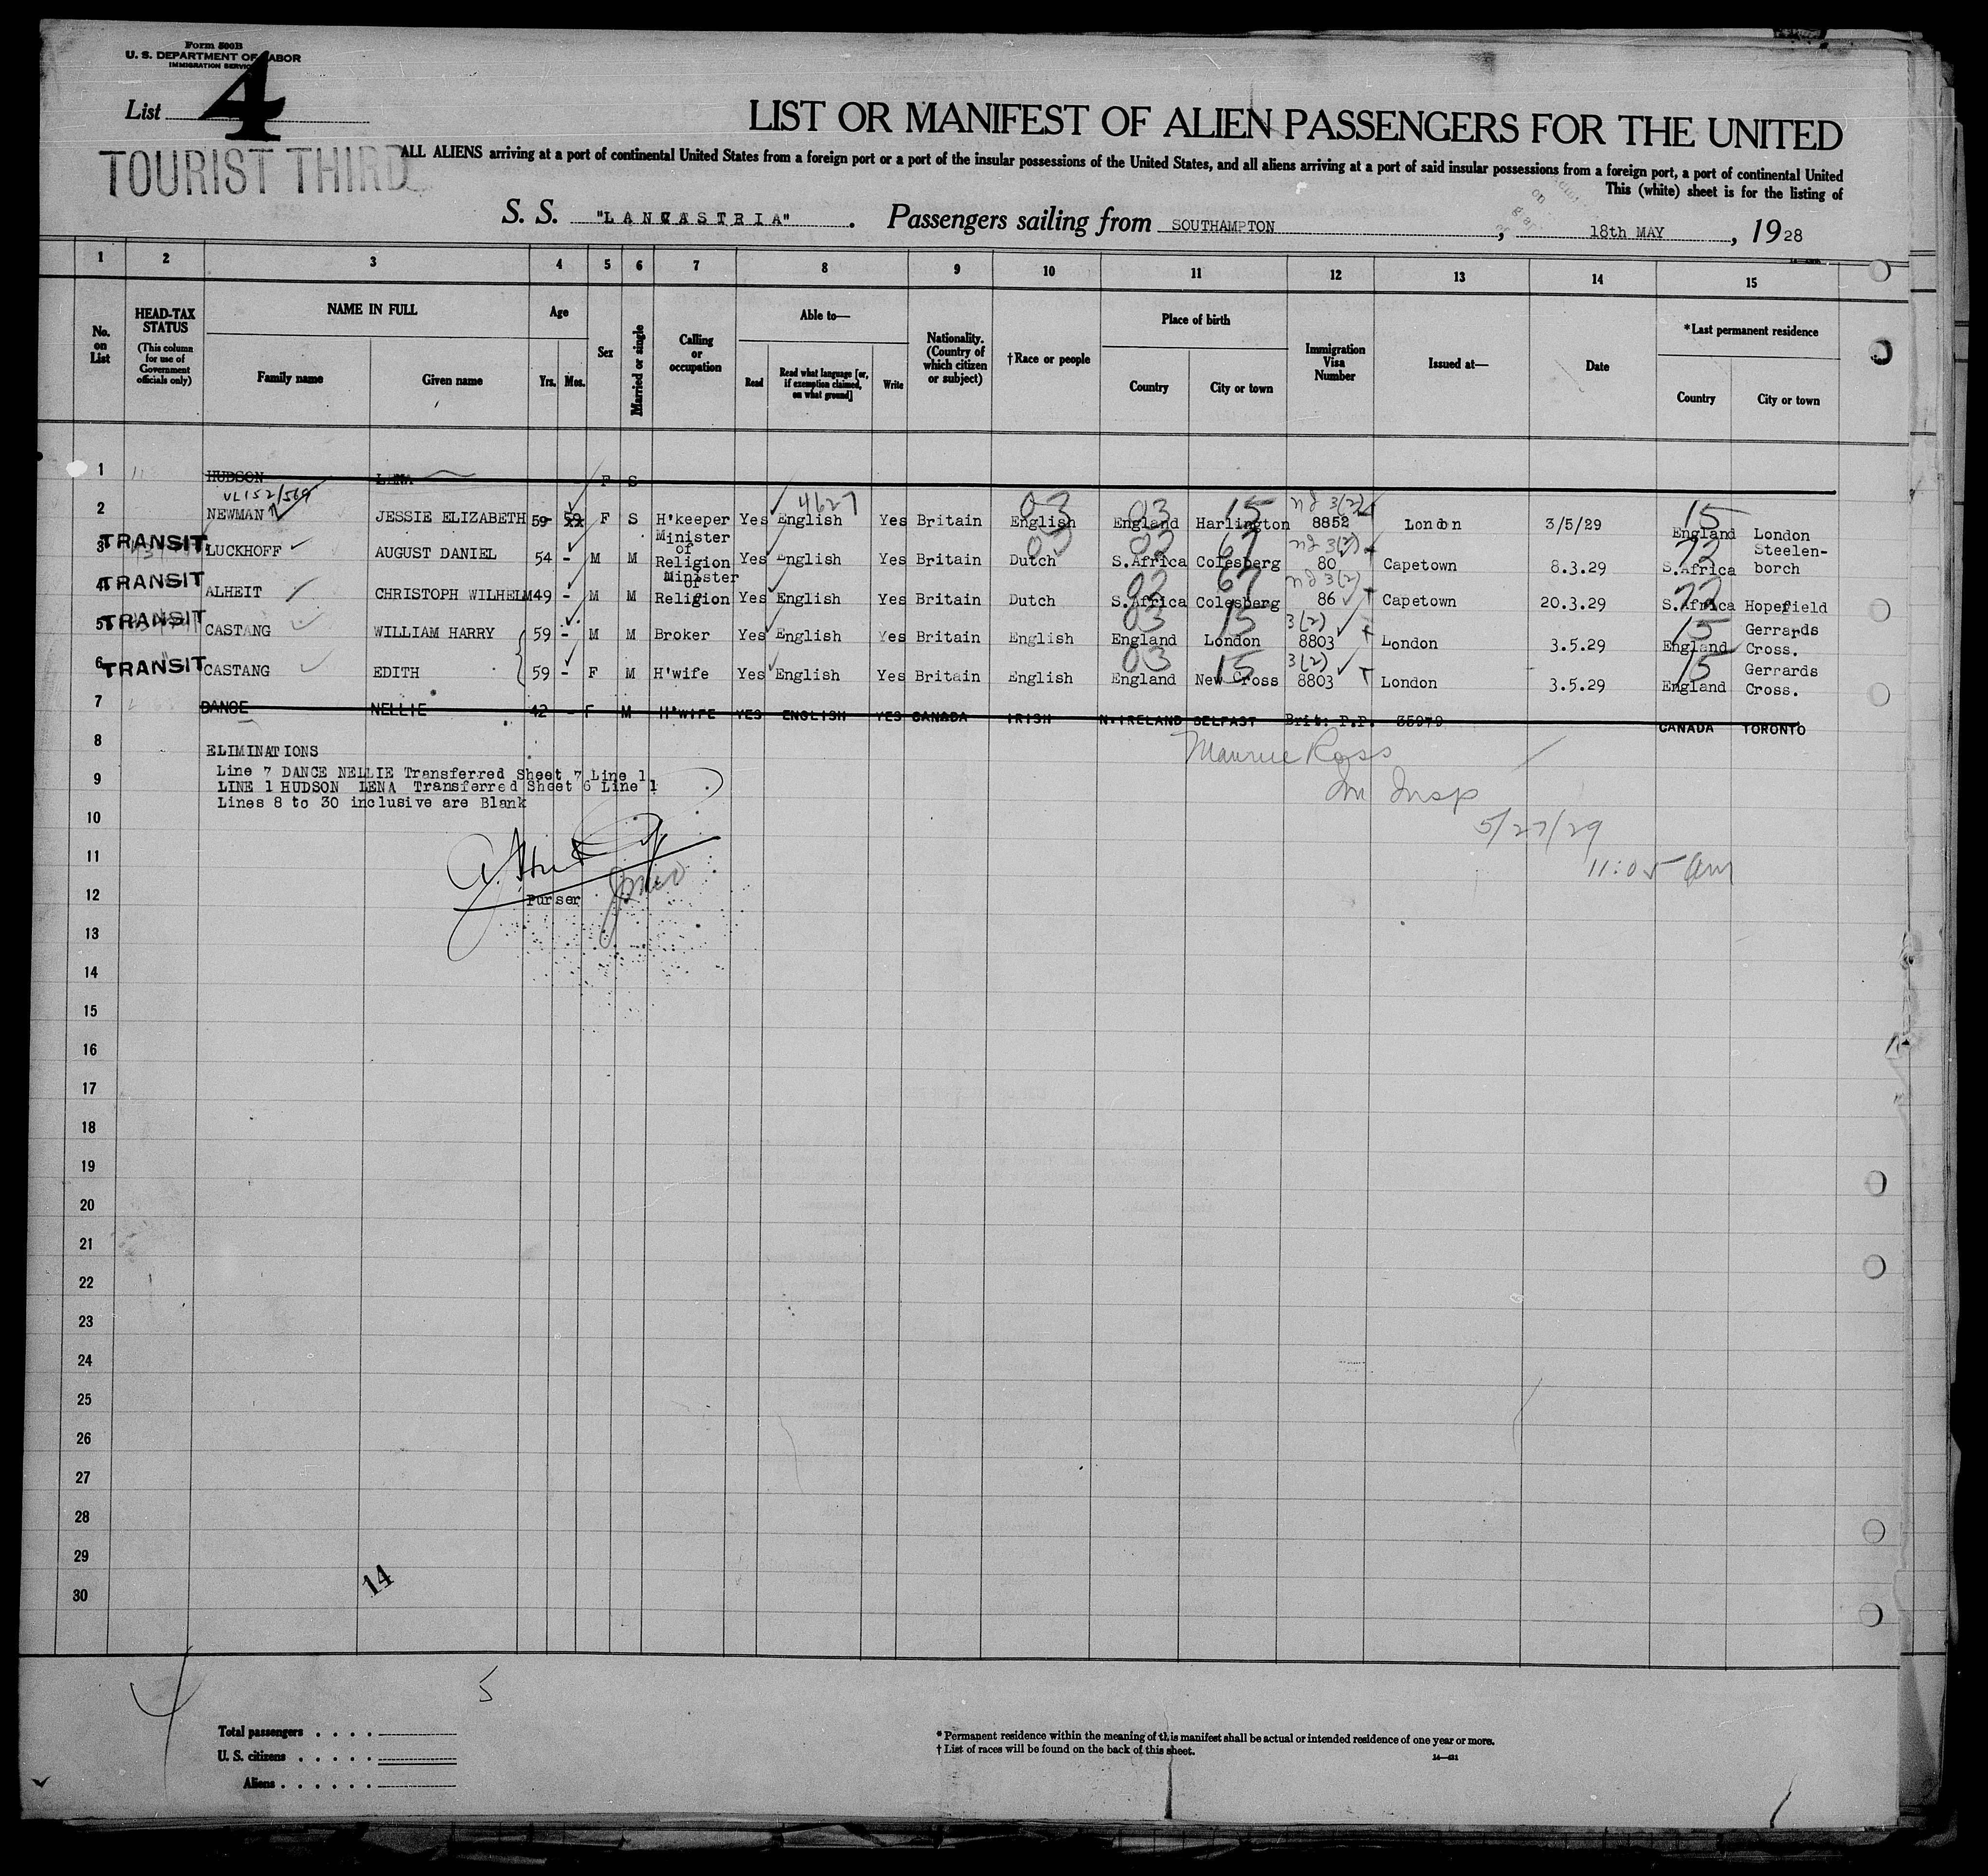 Form 500B
U. S. DEPARTMENT OF LABOR
IMMIGRATION SERVICE
List 4
TOURIST THIRD
LIST OR MANIFEST OF ALIEN PASSENGERS FOR THE UNITED
ALL ALIENS arriving at a port of continental United States from a foreign port or a port of the insular possessions of the United States, and all aliens arriving at a port of said insular possessions from a foreign port, a port of continental United
This (white) sheet is for the listing of
S. S. "LANCASTRIA". Passengers sailing from SOUTHAMPTON, 18th MAY, 1928
1 2 3 4 5 6 7 8 9 10 11 12 13 14 15
No. on List
HEAD-TAX STATUS
(This column for use of Government officials only)
NAME IN FULL
Family name Given name
Age
Yrs. Mos.
Sex
Married or single
Calling or occupation
Able to—
Read Read what language [or, if exemption claimed, on what ground] Write
Nationality. (Country of which citizen or subject)
†Race or people
Place of birth
Country City or town
Immigration Visa Number
Issued at—
Date
*Last permanent residence
Country City or town
1 HUDSON LENA F S
VL152/569 4627 03 03 15 3(2) 15
2 NEWMAN JESSIE ELIZABETH 59- 59 F S H'keeper Yes English Yes Britain English England Harlington 8852 London 3/5/29 England London
03 02 67 3(2) 72
3 TRANSIT LUCKHOFF AUGUST DANIEL 54 - M M Minister of Religion Yes English Yes Britain Dutch S.Africa Colesberg 80 Capetown 8.3.29 S.Africa Steelen-borch
02 67 3(2) 72
4 TRANSIT ALHEIT CHRISTOPH WILHELM 49 - M M Minister of Religion Yes English Yes Britain Dutch S.Africa Colesberg 86 Capetown 20.3.29 S.Africa Hopefield
03 15 3(2) 15
5 TRANSIT CASTANG WILLIAM HARRY 59 - M M Broker Yes English Yes Britain English England London 8803 London 3.5.29 England Gerrards Cross.
03 15 3(2) 15
6 TRANSIT CASTANG EDITH 59 - F M H'wife Yes English Yes Britain English England New Cross 8803 London 3.5.29 England Gerrards Cross.
7 DANCE NELLIE 42 - F M H'WIFE YES ENGLISH YES CANADA IRISH N.IRELAND BELFAST Brit: P.P. 35979 CANADA TORONTO
8 ELIMINATIONS Maurice Ross
Line 7 DANCE NELLIE Transferred Sheet 7 Line 1
9 LINE 1 HUDSON LENA Transferred Sheet 6 Line 1 Im Insp
Lines 8 to 30 inclusive are Blank
10 5/27/29
11 11:05 am
12 Purser
13
14
15
16
17
18
19
20
21
22
23
24
25
26
27
28
29
30
14
5
Total passengers . . . .
U. S. citizens . . . . .
Aliens . . . . . .
* Permanent residence within the meaning of this manifest shall be actual or intended residence of one year or more.
† List of races will be found on the back of this sheet.
14—421